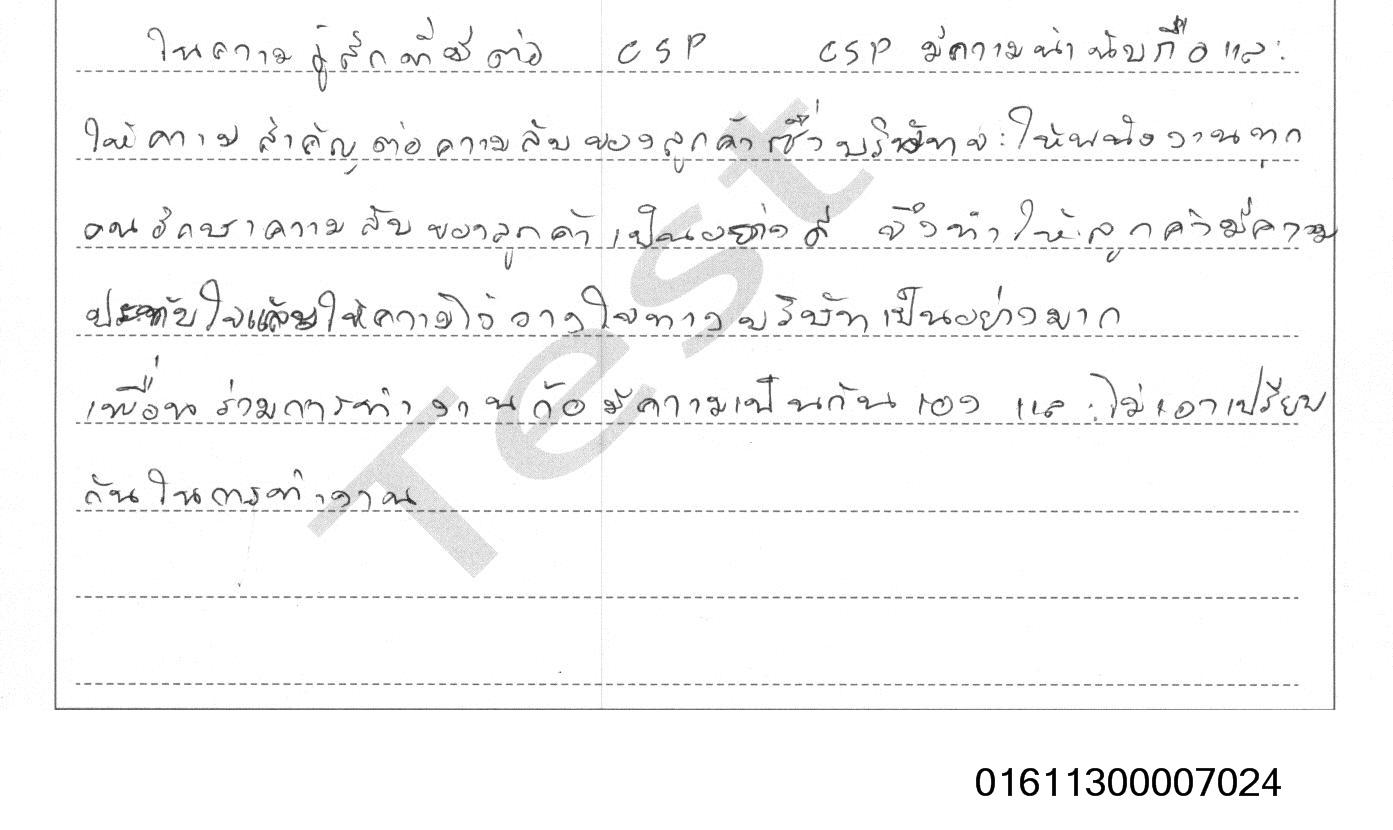 ในความรู้สึกที่มีต่อ CSP CSP มีความน่านับถือและ
ให้ความสำคัญต่อความลับของลูกค้าซึ่งบริษัทจะให้พนักงานทุก
คนรักษาความลับของลูกค้าเป็นอย่างดี จึงทำให้ลูกค้ามีความ
ประทับใจและให้ความไว้วางใจทางบริษัทเป็นอย่างมาก
เพื่อนร่วมการทำงานก็อมีความเป็นกันเอง และไม่เอาเปรียบ
กันในการทำงาน
Test
01611300007024